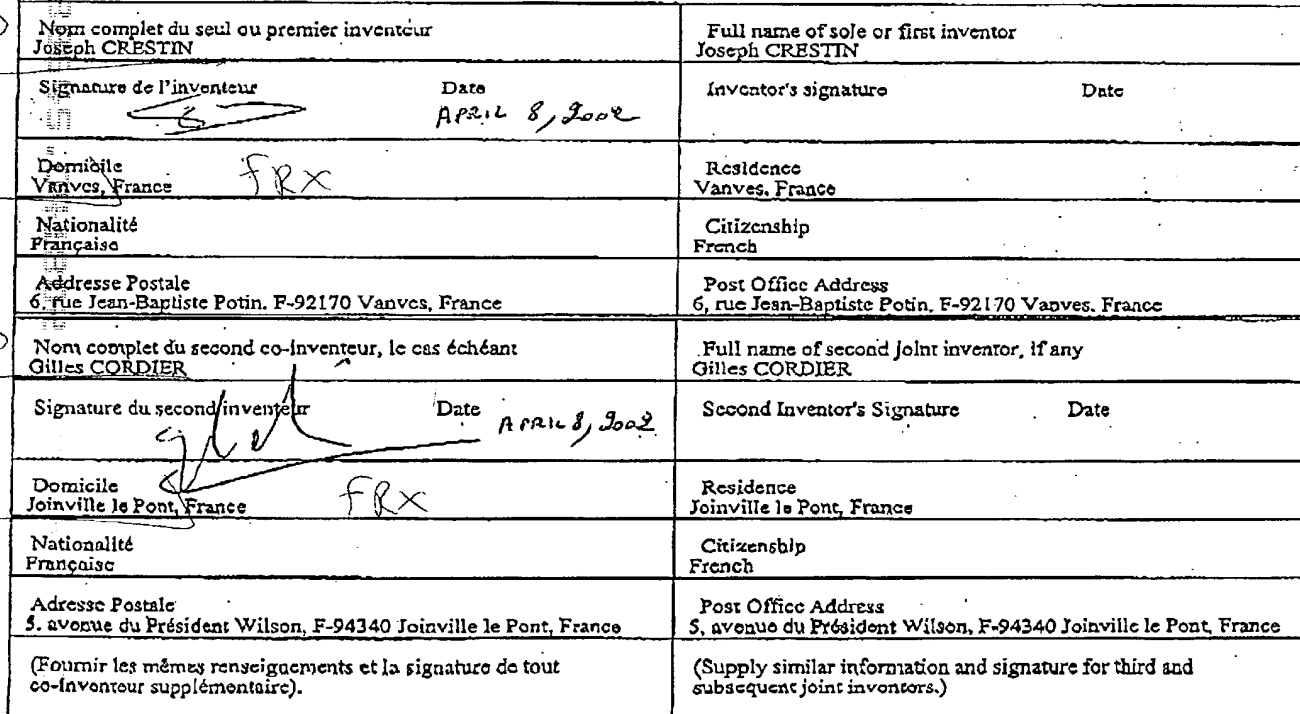 Nom complet du seul ou premier inventeur
Joseph CRESTIN
Full name of sole or first inventor
Joseph CRESTIN
Signature de l'inventeur Date
APRIL 8, 2002
Inventor's signature Date
Domicile
Vanves, France FRX
Residence
Vanves, France
Nationalité
Française
Citizenship
French
Addresse Postale
6, rue Jean-Baptiste Potin, F-92170 Vanves, France
Post Office Address
6, rue Jean-Baptiste Potin, F-92170 Vanves, France
Nom complet du second co-inventeur, le cas échéant
Gilles CORDIER
Full name of second joint inventor, if any
Gilles CORDIER
Signature du second inventeur Date APRIL 8, 2002
Second Inventor's Signature Date
Domicile
Joinville le Pont, France FRX
Residence
Joinville le Pont, France
Nationalité
Française
Citizenship
French
Adresse Postale
5, avenue du Président Wilson, F-94340 Joinville le Pont, France
Post Office Address
5, avenue du Président Wilson, F-94340 Joinville le Pont, France
(Fournir les mêmes renseignements et la signature de tout
co-inventeur supplémentaire).
(Supply similar information and signature for third and
subsequent joint inventors.)